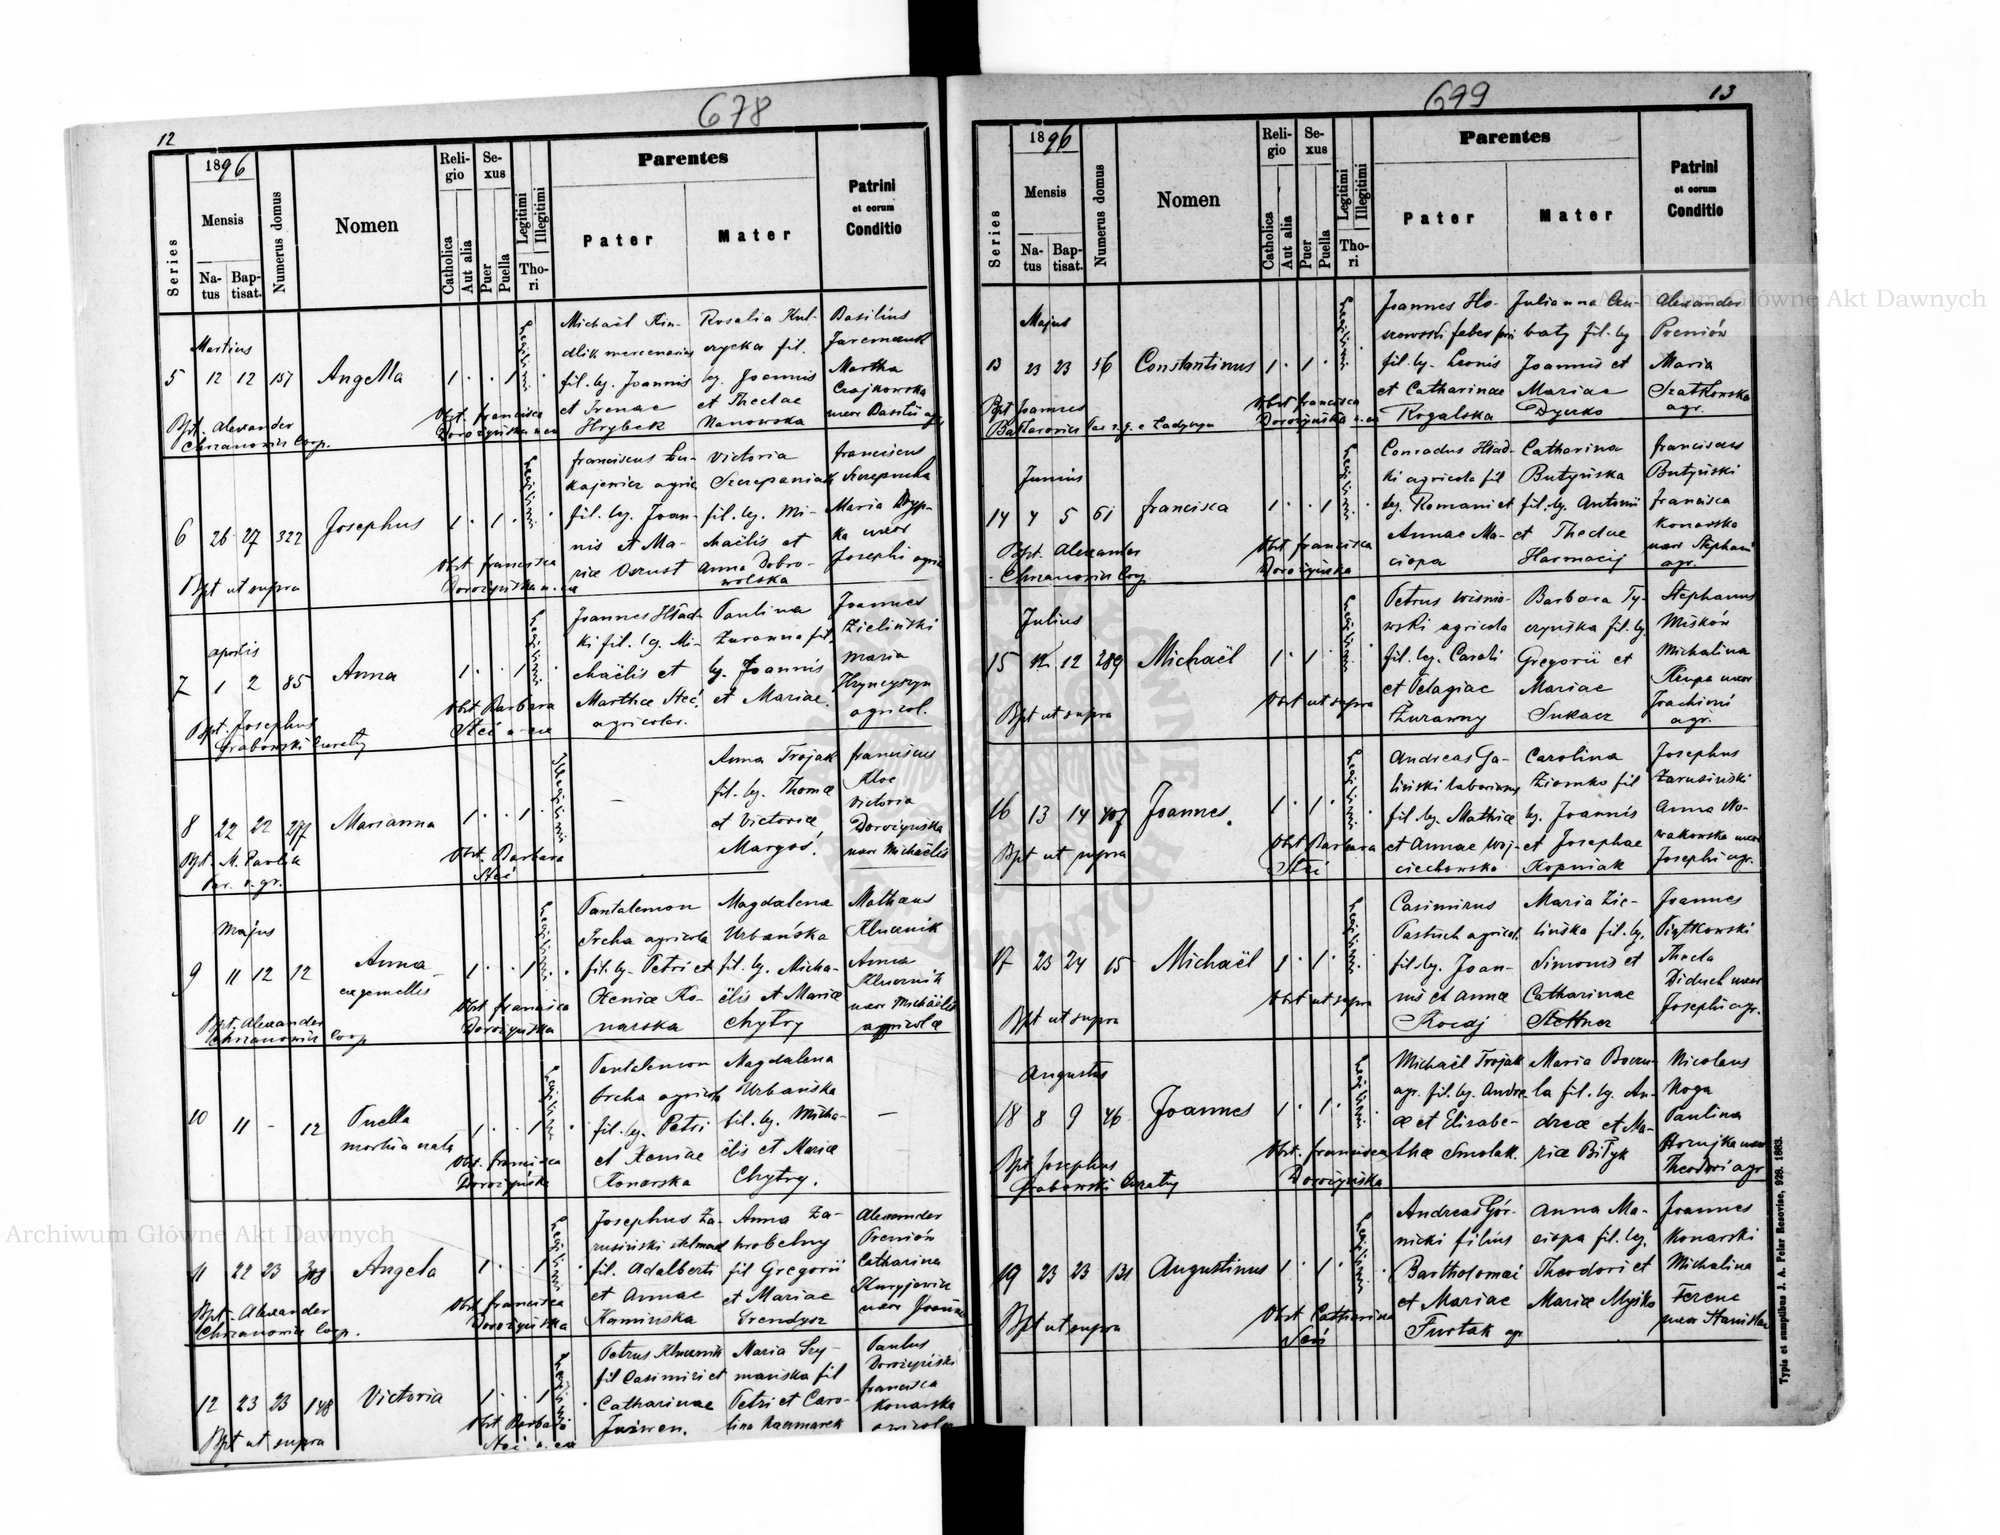 12
678
1896
Mensis
Series
Natus
Baptisat.
Numerus domus
Nomen
Religio
Catholica
Aut alia
Sexus
Puer
Puella
Legitimi
Illegitimi
Thori
Parentes
Pater
Mater
Patrini
et eorum
Conditio
Martius
5 12 12 157 Angella 1 · · 1 Legitimi
Michaël Kin-
dlik mercenarius
fil. leg. Joannis
et Irenae
Hrybek
Rosalia Kul-
czycka fil.
leg. Joannis
et Theclae
Nanowska
Basilius
Martha
Czajkowska
uxor Basilii agr.
Bpt. Alexander
Chrzanowicz Coop.
Obst. francisca
Dorożyńska n. ex
6 26 27 322 Josephus 1 · 1 · Legitimi
franciscus Łu-
kajewicz agric
fil. leg. Joan-
nis et Ma-
riæ Oszust
Victoria
Szczepaniak
fil. leg. Mi-
chaëlis et
Anna Dobro-
wolska
franciscus
Maria
uxor
Josephi agric
Bpt ut supra
Obst francisca
Dorożyńska n. ex
aprilis
7 1 2 85 Anna 1 · · 1 Legitimi
Joannes Hład-
ki fil. leg. Mi-
chaëlis et
Marthæ Steć
agricolæ.
Paulina
Zuranna fil.
leg. Joannis
et Mariae.
Joannes
Zieliński
Maria
Hryncyszyn
agricol.
Bpt. Josephus
Grabowski
Obst Barbara
Steć n. ex
8 22 22 277 Marianna 1 · · 1 Illegitimi
—
Anna Trojak
fil. leg. Thomæ
et Victoriæ
Margos.
franciscus
Kloc
Victoria
Dorożyńska
uxor Michaëlis
Bpt. N. Pawlik
Par. r. gr.
Obst. Barbara
Steć
Majus
9 11 12 12 Anna
ex gemellis
1 · · 1 Legitimi
Pantalemon
Ircha agricola
fil. leg. Petri et
Xeniæ Ko-
narska
Magdalena
Urbańska
fil. leg. Micha-
ëlis et Mariæ
Chytry
Mathæus
Klucznik
Anna
Klucznik
uxor Michaëlis
agricolæ
Bpt. Alexander
Chrzanowicz Coop
Obst francisca
Dorożyńska
10 11 – 12 Puella
mortua nata
1 · · 1 Legitimi
Pantalemon
Ircha agricola
fil. leg. Petri
et Xeniæ
Konarska
Magdalena
Urbańska
fil. leg. Micha-
ëlis et Mariæ
Chytry.
—
Obst. francisca
Dorożyńska
11 22 23 308 Angela 1 · · 1 Legitimi
Josephus Za-
rusiński stelmach
fil. Adalberti
et Annae
Kamińska
Anna Za-
hrobelny
fil Gregorii
et Mariae
Grendysz
Alexander
Preniów
Catharina
uxor
Bpt. Alexander
Chrzanowicz Coop.
Obst francisca
Dorożyńska
12 23 23 148 Victoria 1 · · 1 Legitimi
Petrus Klucznik
fil Casimiri et
Catharinae
Juzwen.
Maria Szy-
mańska fil
Petri et Caro-
lina Kaczmarek
Paulus
Dorożyński
francisca
Konarska
agricolæ
Bpt ut supra
Obst Barbara
Steć n. ex
13
699
1896
Mensis
Series
Natus
Baptisat.
Numerus domus
Nomen
Religio
Catholica
Aut alia
Sexus
Puer
Puella
Legitimi
Illegitimi
Thori
Parentes
Pater
Mater
Patrini
et eorum
Conditio
Majus
13 23 23 56 Constantinus 1 · 1 · Legitimi
Joannes Ho-
fil. leg. Leonis
et Catharinae
Rogalska
Julianna
fil. leg
Joannis et
Mariae
Dyczko
Alexander
Preniów
Maria
Szatkowska
agr.
Bpt Joannes
Obst francisca
Dorożyńska n. ex
Junius
14 4 5 61 francisca 1 · · 1 Legitimi
Conradus Hład-
ki agricola fil
leg. Romani et
Annae Ma-
ciopa
Catharina
Butyńska
fil. leg. Antonii
et Theclae
Harmacij
franciscus
Butyński
francisca
Konarska
uxor Stephani
agr.
Bpt. Alexander
Chrzanowicz Coop.
Obst francisca
Dorożyńska
Julius
15 12 12 289 Michaël 1 · 1 · Legitimi
Petrus Wiśnio-
wski agricola
fil. leg. Caroli
et Pelagiae
Żurawny
Barbara Ty-
czyńska fil. leg.
Gregorii et
Mariae
Sukacz
Stephanus
Miśków
Michalina
Rzepa uxor
Joachimi
agr.
Bpt ut supra
Obst ut supra
16 13 14 407 Joannes. 1 · 1 · Legitimi
Andreas Ga-
liński laborians
fil. leg. Mathiæ
et Annae Woj-
ciechowska
Carolina
Ziomko fil
leg. Joannis
et Josephae
Kopniak
Josephus
Zarusinski
Anna No-
wakowska uxor
Josephi agr.
Bpt ut supra
Obst Barbara
Steć
17 23 24 15 Michaël 1 · 1 · Legitimi
Casimirus
Pastuch agricol.
fil. leg. Joan-
nis et Annæ
Roczaj
Maria Zie-
lińska fil. leg.
Simonis et
Catharinae
Stettner
Joannes
Piątkowski
Thecla
Diduch uxor
Josephi agr.
Bpt ut supra
Obst ut supra
Augustus
18 8 9 46 Joannes 1 · 1 · Legitimi
Michaël Trojak
agr. fil. leg. Andre-
æ et Elisabe-
thæ Smolak.
Maria Boczu-
la fil. leg. An-
dreæ et Ma-
riæ Biłyk
Nicolaus
Noga
Paulina
Hornijka uxor
Theodori agr
Bpt Josephus
Grabowski
Obst. francisca
Dorożyńska
19 23 23 131 Augustinus 1 · 1 · Legitimi
Andreas Gór-
nicki filius
Bartholomæi
et Mariae
Furtak agr
Anna Ma-
ciopa fil. leg.
Theodori et
Mariæ Myśko
Joannes
Konarski
Michalina
Ferenc
uxor Stanislai
Bpt ut supra
Obst Catharina
Typis et sumptibus J. A. Pelar Resoviae, 928. 1883.
Archiwum Główne Akt Dawnych
Archiwum Główne Akt Dawnych